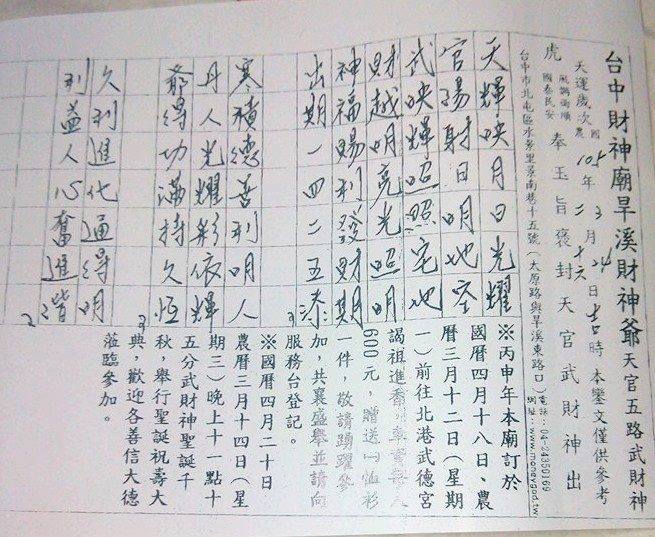 台中財神廟旱溪財神爺天官五路武財神
天運歲次國農105年3月24日吉時 本鑾文僅供參考
二 十六
風調雨順
國泰民安
虎 奉玉旨褒封天官武財神出
台中市北屯區水景里景南巷十五號(太原路與旱溪東路口)電話:04-24350169
網址:www.moneygod.tw
天輝映月日光耀
官陽射日明地空
武映輝照照宅地
財越明亮光照明
神福賜利發財期
出期一四二五漆
寒積德善利明人
丹人光耀彩依輝
爺得功滿持久恒
久利進化通得明
利益人心奮進諧
※丙申年本廟訂於
國曆四月十八日、農
曆三月十二日(星期
一)前往北港武德宮
謁祖進香,車資每人
600元,贈送T恤衫
一件,敬請踴躍參
加,共襄盛舉並請向
服務台登記。
※國曆四月二十日
農曆三月十四日(星
期三)晚上十一點十
五分武財神聖誕千
秋,舉行聖誕祝壽大
典,歡迎各善信大德
蒞臨參加。